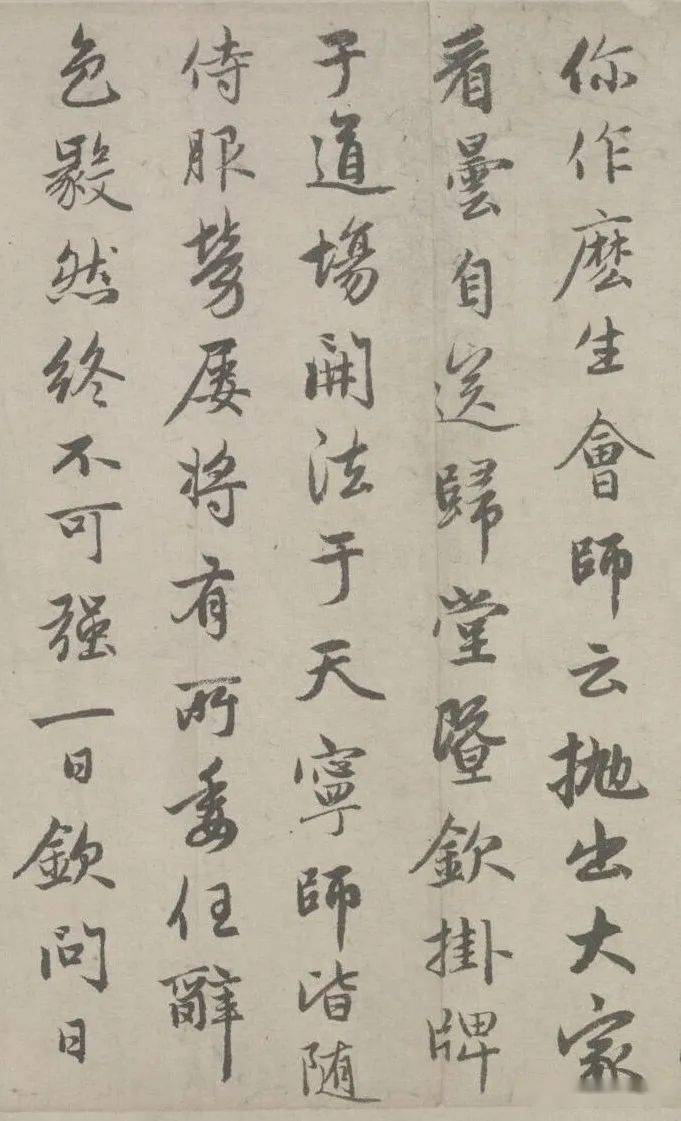 你作麽生會師云抛出大家
看曇自送歸堂暨欽掛牌
于道場開法于天寧師皆随
侍服勞屡將有所委任辭
色毅然終不可强一日欽問曰